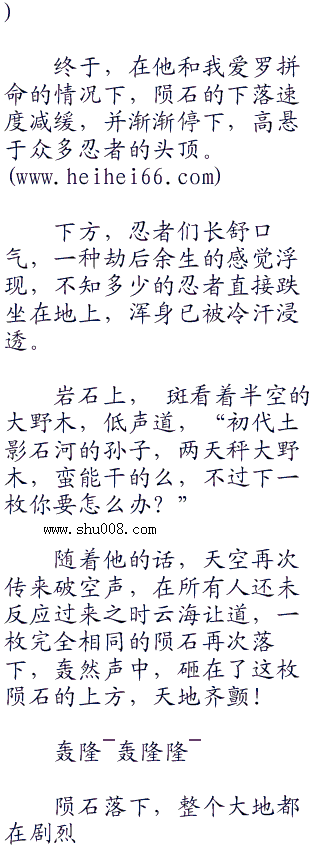 )
终于，在他和我爱罗拼
命的情况下，陨石的下落速
度减缓，并渐渐停下，高悬
于众多忍者的头顶。
(www.heihei66.com)
下方，忍者们长舒口
气，一种劫后余生的感觉浮
现，不知多少的忍者直接跌
坐在地上，浑身已被冷汗浸
透。
岩石上， 斑看着半空的
大野木，低声道，“初代土
影石河的孙子，两天秤大野
木，蛮能干的么，不过下一
枚你要怎么办？”
www.shu008.com
随着他的话，天空再次
传来破空声，在所有人还未
反应过来之时云海让道，一
枚完全相同的陨石再次落
下，轰然声中，砸在了这枚
陨石的上方，天地齐颤！
轰隆¯轰隆隆¯
陨石落下，整个大地都
在剧烈